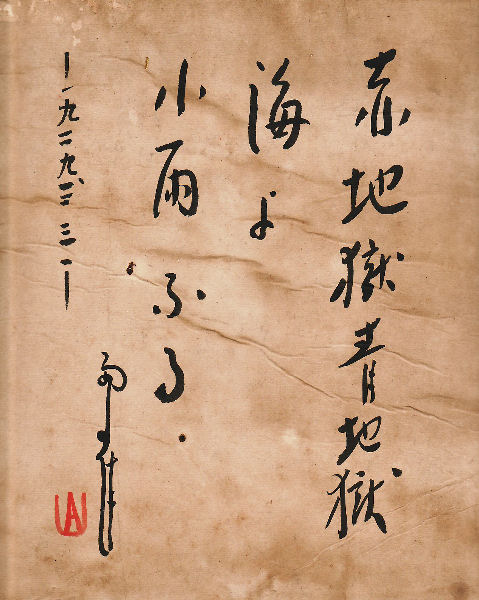 赤地獄青地獄
海よ
小雨ふる.
一九二九、三、三一
雨雀
UA